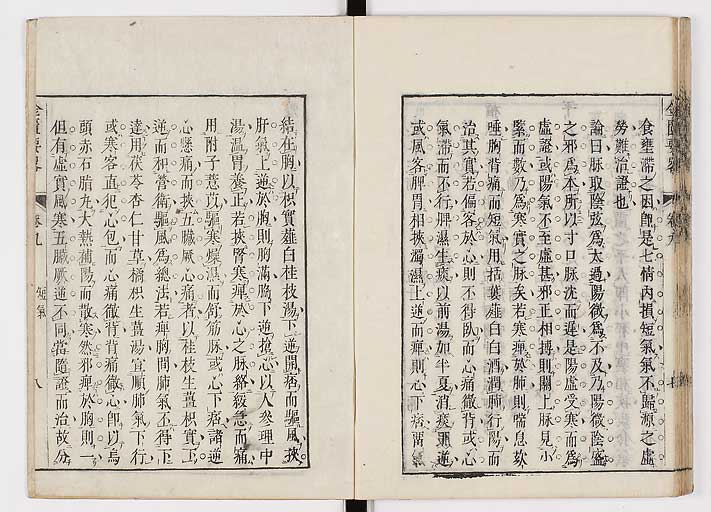 食壅滯之因卽是七情內損短氣氣不歸源之虛
勞難治證也
論曰脉取陰弦爲太過陽微爲不及乃陽微陰盛
之邪爲本所以寸口脉沈而遲是陽虛受寒而爲
虛證或陽氣不至虛甚邪正相搏則關上脉見小
緊而數乃爲寒實之脉矣若寒痺於肺則喘息欬
唾胸背痛而短氣用括蔞薤白白酒潤肺行陽而
治其實若偏客於心則不得臥而心痛徹背或心
氣滯而不行脾濕生痰以前湯加半夏消痰驅逆
或風客脾胃相挾濁濕上逆而痺則心下痞留氣
結在胸以枳實薤白桂枝湯下逆開痞而驅風挾
肝氣上逆於胸則胸滿脇下逆搶心以人參理中
湯溫胃養正若挾腎寒痺於心之脉絡緩急而痛
用附子薏苡驅寒燥濕而舒筋脉或心下痞諸逆
心懸痛而挾五臟厥心痛者以桂枝生薑枳實下
逆而和營衛驅風爲總法若痺胸間肺氣不得下
達用茯苓杏仁甘草橘枳生薑湯宜順肺氣下行
或寒客直犯心包而心痛徹背背痛徹心卽以烏
頭赤石脂丸大熱補陽而散寒然邪痺於胸則一
但有虛實風寒五臟厥逆不同當隨證而治故分
金匱要畧
卷九
短氣
八